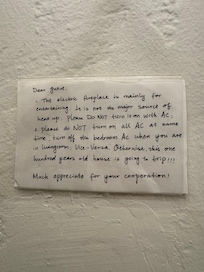 Dear guest,
1. The electric fireplace is mainly for
entertaining. It is not the major source of
heat up. Please Do NOT turn it on with AC;
2. please do NOT turn on all AC at same
time, turn off the bedroom AC when you are
in livingroom; Vice-Versa. Otherwise this one
hundred years old house is going to trip!!!
Much appreciate for your cooperation!